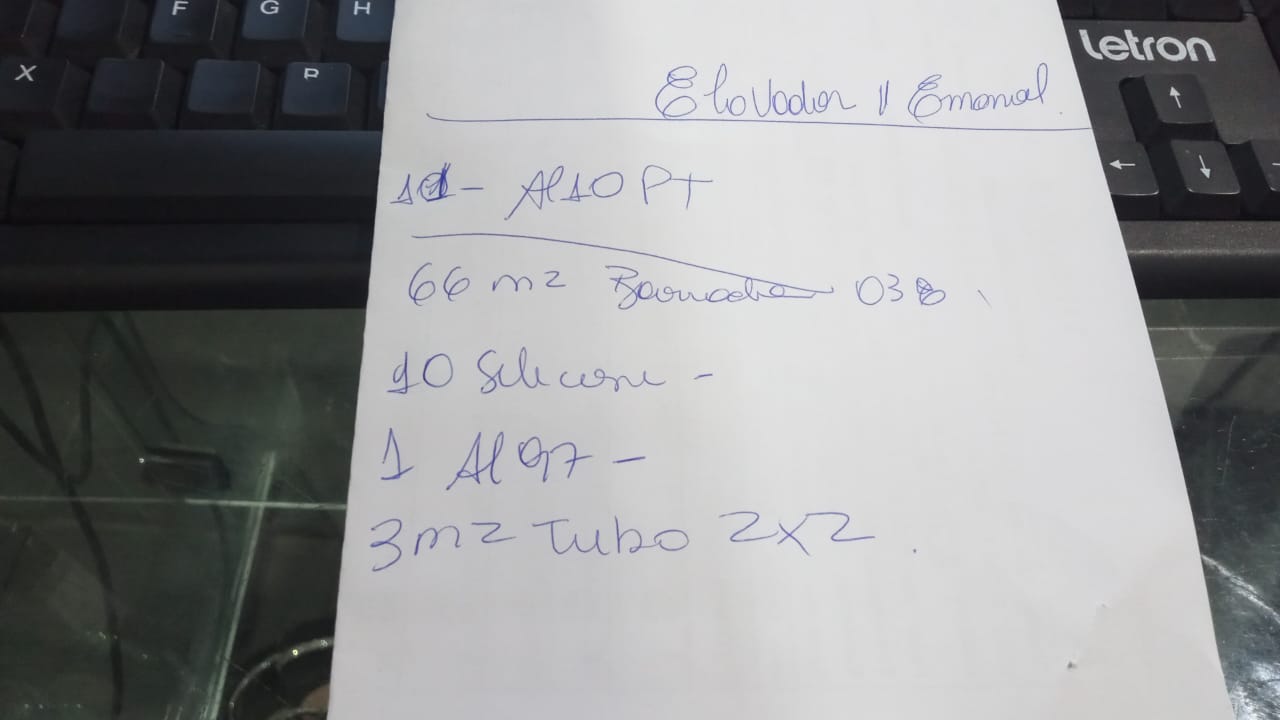 F G H
X P
letron
Elovador 11 Emanoel
- Al10 PT
66 m2 Borracha 038
10 Silicone -
1 Al 97 -
3m2 Tubo 2x2 .